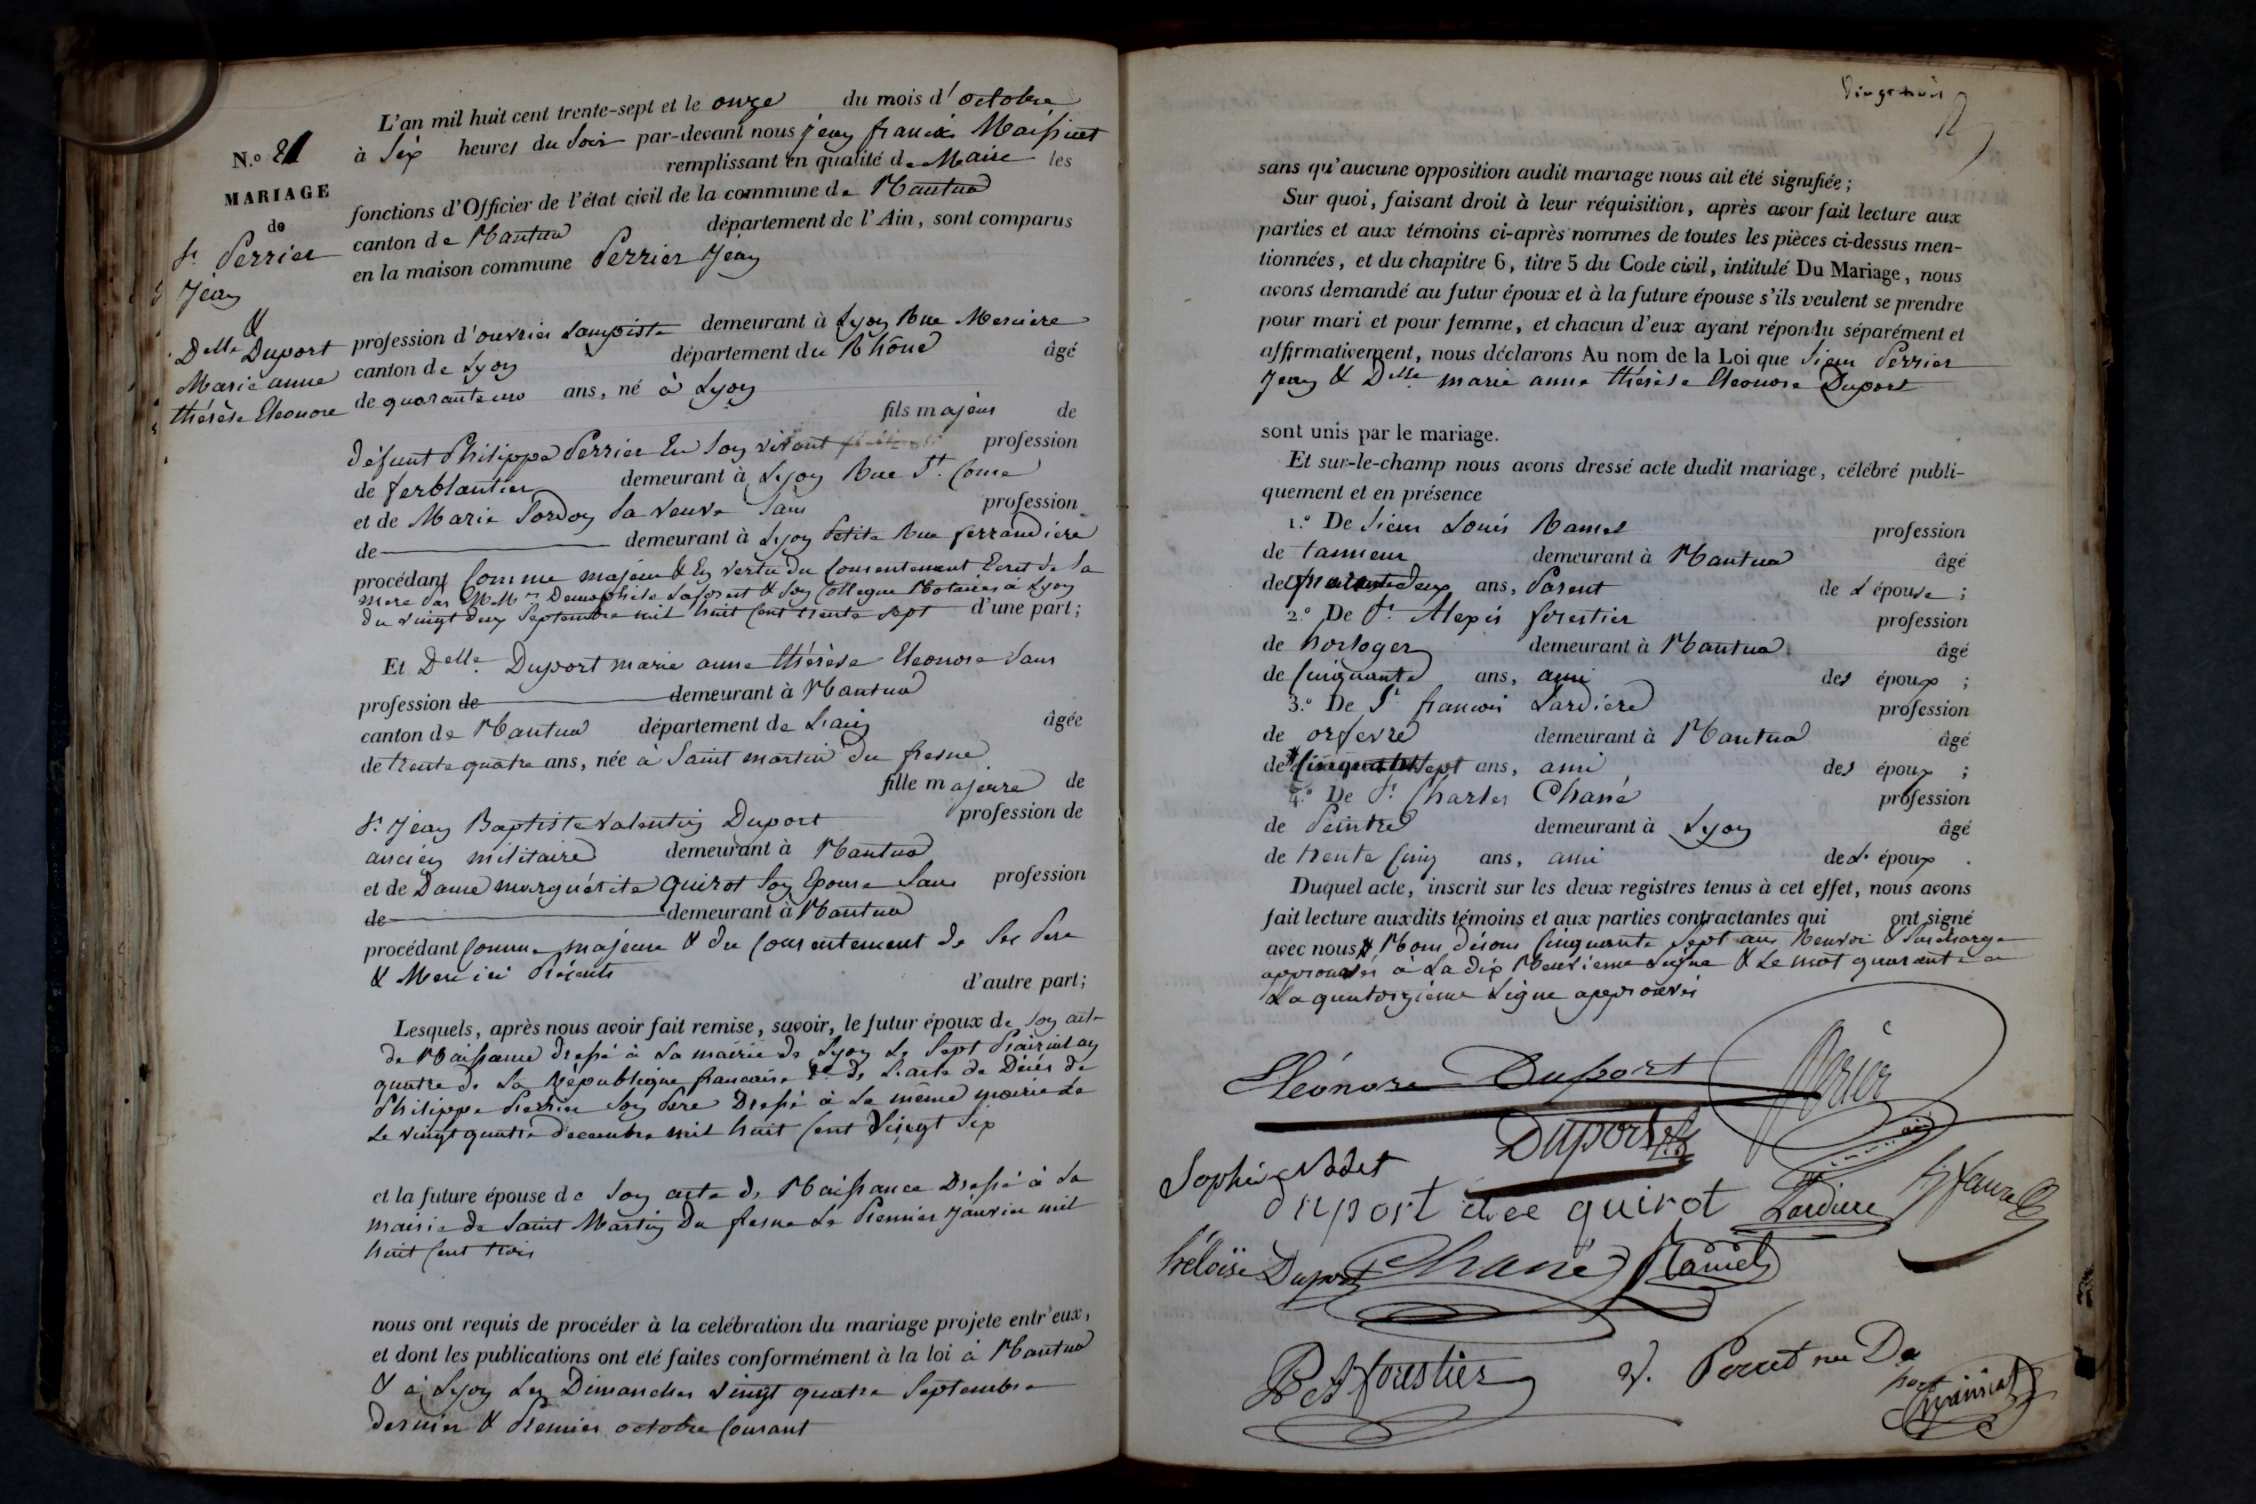 N.o 21
MARIAGE
de
Sr. Perrier
Jean
&
Delle Duport
Marie anne
thérèse Eleonore
L'an mil huit cent trente-sept et le onze du mois d'octobre
à Six heures du Soir par-devant nous jean francois Maissiat
remplissant en qualité de Maire les
fonctions d'Officier de l'état civil de la commune de Nantua
canton de Nantua département de l'Ain, sont comparus
en la maison commune Perrier Jean
profession d'ouvrier Lampiste demeurant à Lyon Rue Mercière
canton de Lyon département du Rhône âgé
de quarante un ans, né à Lyon
fils majeur de
défunt Philippe Perrier En Son vivant profession
de ferblantier demeurant à Lyon Rue St. Come
et de Marie Sordon Sa veuve Sans profession
de demeurant à Lyon Petite Rue ferrandière
procédant Comme majeur & En vertu du Consentement Ecrit de Sa
mere Par Demophile Laforest & Son Collegue Notaires à Lyon
du vingt deux Septembre mil huit Cent trente sept d'une part;
Et Delle. Duport marie anne thérèse Eleonore Sans
profession de demeurant à Nantua
canton de Nantua département de L'ain âgée
de trente quatre ans, née à Saint martin du fresne
fille majeure de
Sr. Jean Baptiste valentin Duport profession de
ancien militaire demeurant à Nantua
et de Dame marguérite Quirot Son Epouse Sans profession
de demeurant à Nantua
procédant Comme majeure & du Consentement de Ses Pere
& Mere ici Présents d'autre part;
Lesquels, après nous avoir fait remise, savoir, le futur époux de Son acte
de Naissance dressé à La mairie de Lyon Le Sept Prairial an
quatre de La République francaise 2o de L'acte de Décès de
Philippe Perrier Son Pere Dressé à La même mairie Le
Le vingt quatre decembre mil huit Cent Vingt Six
et la future épouse de Son acte de Naissance Dressé à La
mairie de Saint Martin Du fresne Le Premier Janvier mil
huit Cent trois
nous ont requis de procéder à la celébration du mariage projete entr'eux,
et dont les publications ont eté faites conformément à la loi à Nantua
& à Lyon Les Dimanches vingt quatre Septembre
dernier & Premier octobre Courant
sans qu'aucune opposition audit mariage nous ait été signifiée;
Sur quoi, faisant droit à leur réquisition, après avoir fait lecture aux
parties et aux témoins ci-après nommes de toutes les pièces ci-dessus men-
tionnées, et du chapitre 6, titre 5 du Code civil, intitulé Du Mariage, nous
avons demandé au futur époux et à la future épouse s'ils veulent se prendre
pour mari et pour femme, et chacun d'eux ayant répondu séparément et
affirmativement, nous déclarons Au nom de la Loi que Sieur Perrier
Jean & Delle. marie anne thérèse Eleonore Duport
sont unis par le mariage.
Et sur-le-champ nous avons dressé acte dudit mariage, célébré publi-
quement et en présence
1.o De Sieur Louis Ramel profession
de tanneur demeurant à Nantua âgé
de quarante deux ans, Parent de L'épouse ;
2.o De Sr. Alexis forestier profession
de horloger demeurant à Nantua âgé
de Cinquante ans, ami des époux ;
3.o De Sr francois Lardiere profession
de orfevre demeurant à Nantua âgé
de Cinquante Sept ans, ami des époux ;
4.o De Sr. Charles Chané profession
de Peintre demeurant à Lyon âgé
de trente Cinq ans, ami de L'époux .
Duquel acte, inscrit sur les deux registres tenus à cet effet, nous avons
fait lecture auxdits témoins et aux parties contractantes qui ont signé
avec nous & Nous disons Cinquante Sept ans Renvoi & Surcharge
approuvés à La dix Neuvieme Ligne & Le mot quarante a
La quatorzième Ligne approuvés
Eléonore Duport
Périer
Duport
Sophie
duport née quirot
Lardiere
faure
héloïse Duport
Chané
Ramel
forestier
V. Perret née Du
port
Maissiat